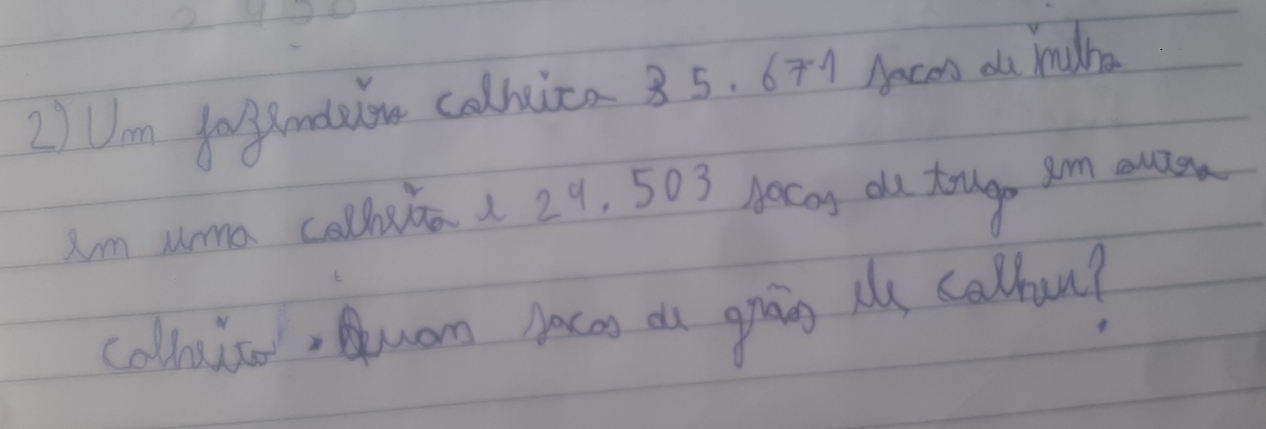 2) Um fazendeiro colheita 35.671 sacos de milho
em uma colheita e 24.503 sacos de trugo em outra
colheita. Quan sacos de grãos ele colheu?